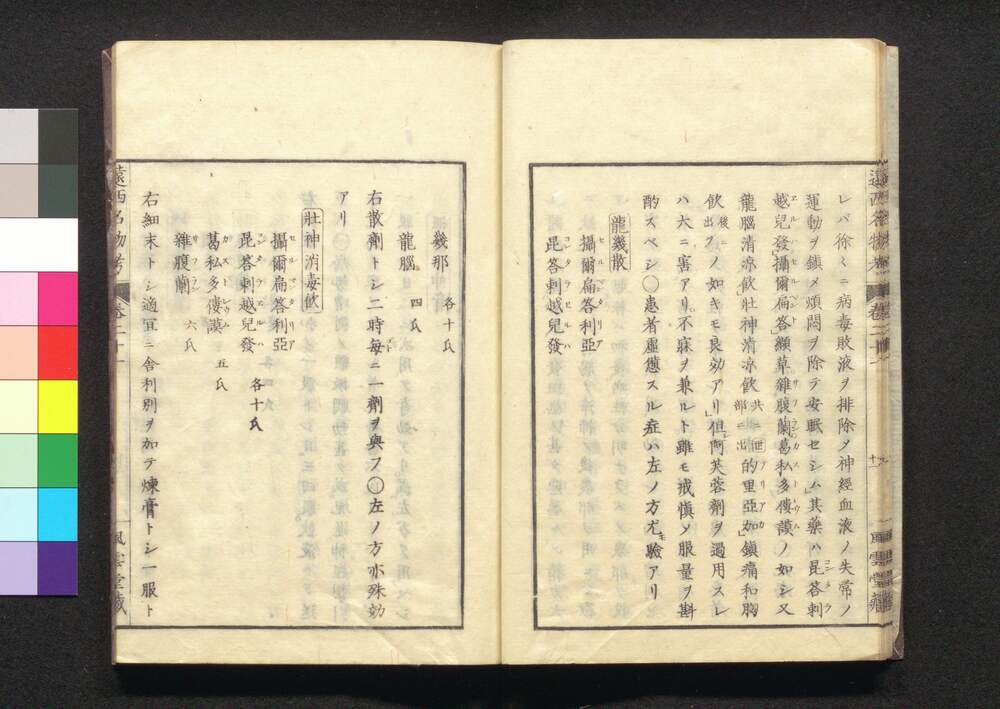 レバ徐々ニ病毒敗液ヲ排除メ神經血液ノ失常ノ
運動ヲ鎮メ煩悶ヲ除テ安眠セシム」其藥ハ昆答剌
越兒發」攝爾扁答」纈草雜腹蘭葛私多僂謨ノ如シ又
龍腦清凉飲」壯神清凉飲共ニ世部ニ出的里亞加」鎮痛和胸
飲後出ツノ如キモ良効アリ」但阿芙蓉劑ヲ過用スレ
ハ大ニ害アリ不寐ヲ兼ルト雖モ戒慎メ服量ヲ斟
酌スベシ〇患者虚憊スル症ハ左ノ方尤驗アリ
龍幾散
攝爾扁答利亞
昆答剌越兒發
幾那 各十氏
龍腦 四氏
右散劑トシ二時每ニ一劑ヲ與フ〇左ノ方亦殊効
アリ
壯神消毒飲
攝爾扁答利亞
昆答剌越兒發 各十氏
葛私多僂謨 五氏
雜腹蘭 六氏
右細末トシ適宜ニ舍利別ヲ加テ煉膏トシ一服ト
遠西名物考 卷二十一 風雲堂藏